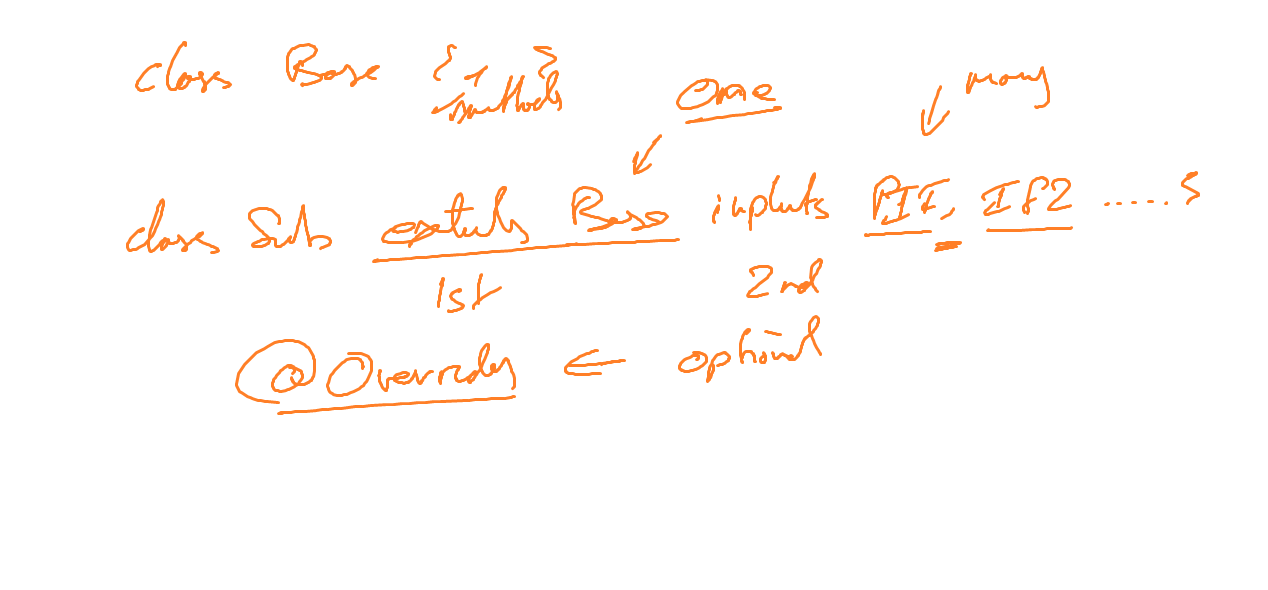 class Base { }
methods
One
many
class Sub extends Base implments IF1, IF2 ..... {
1st 2nd
@Override ← optional